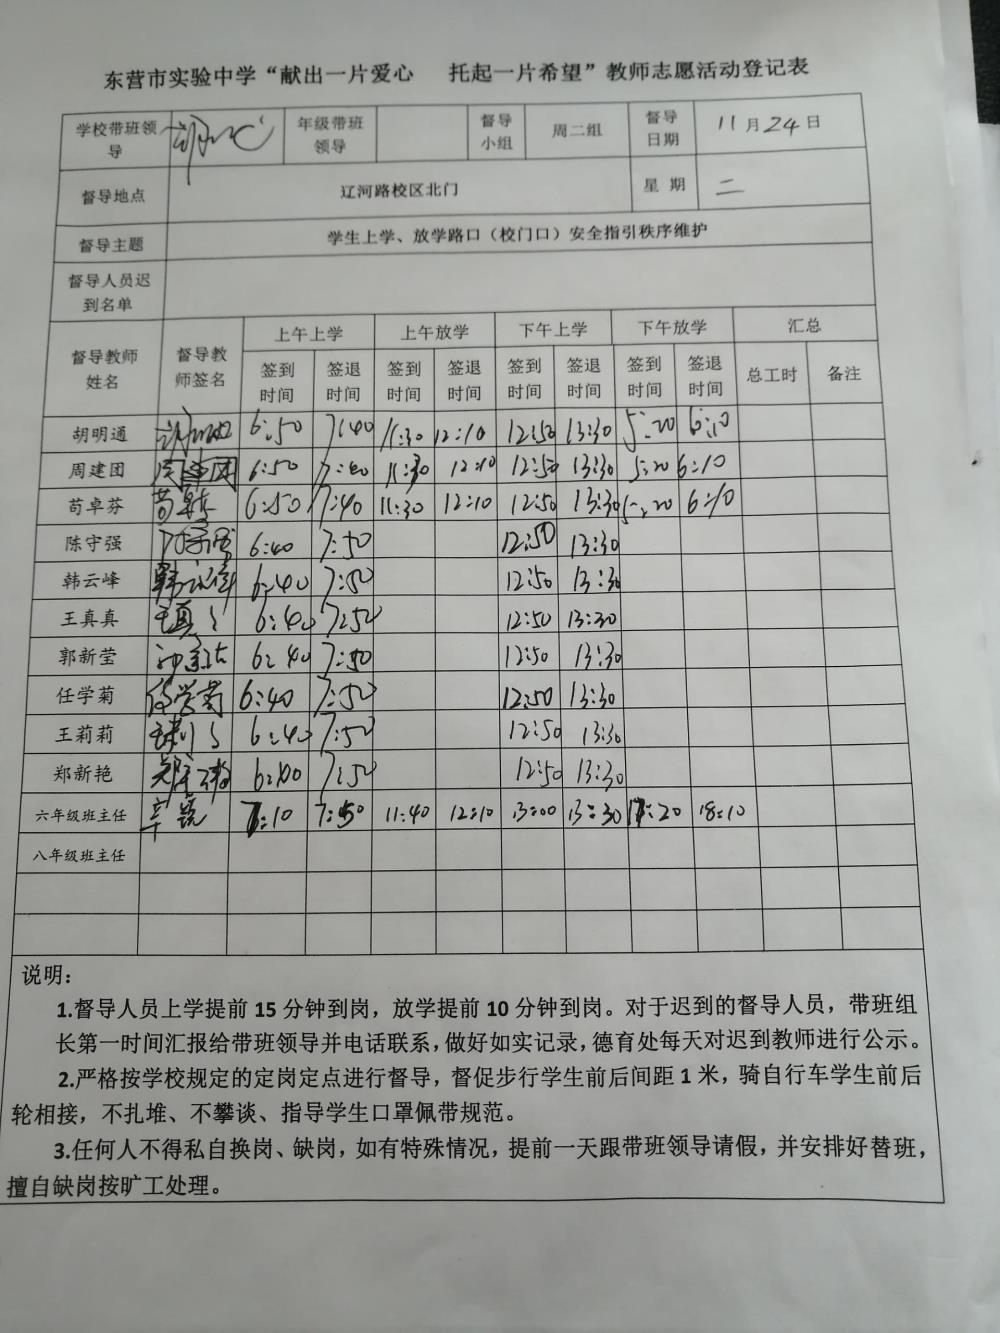 东营市实验中学“献出一片爱心 托起一片希望”教师志愿活动登记表
学校带班领导 年级带班领导 督导小组 周二组 督导日期 11月24日
督导地点 辽河路校区北门 星 期 二
督导主题 学生上学、放学路口（校门口）安全指引秩序维护
督导人员迟到名单
督导教师姓名 督导教师签名 上午上学 上午放学 下午上学 下午放学 汇总
签到时间 签退时间 签到时间 签退时间 签到时间 签退时间 签到时间 签退时间 总工时 备注
胡明通 6:50 7:40 11:30 12:10 12:50 13:30 5:20 6:10
周建团 周建团 6:50 7:40 11:30 12:10 12:50 13:30 5:20 6:10
苟卓芬 6:50 7:40 11:30 12:10 12:50 13:30 5:20 6:10
陈守强 6:40 7:50 12:50 13:30
韩云峰 韩云峰 6:40 7:50 12:50 13:30
王真真 王真真 6:40 7:50 12:50 13:30
郭新莹 6:40 7:50 12:50 13:30
任学菊 任学菊 6:40 7:50 12:50 13:30
王莉莉 6:40 7:50 12:50 13:30
郑新艳 6:40 7:50 12:50 13:30
六年级班主任 7:10 7:50 11:40 12:10 13:00 13:30 17:20 18:10
八年级班主任
说明：
1.督导人员上学提前 15 分钟到岗，放学提前 10 分钟到岗。对于迟到的督导人员，带班组
长第一时间汇报给带班领导并电话联系，做好如实记录，德育处每天对迟到教师进行公示。
2.严格按学校规定的定岗定点进行督导，督促步行学生前后间距 1 米，骑自行车学生前后
轮相接，不扎堆、不攀谈、指导学生口罩佩带规范。
3.任何人不得私自换岗、缺岗，如有特殊情况，提前一天跟带班领导请假，并安排好替班，
擅自缺岗按旷工处理。